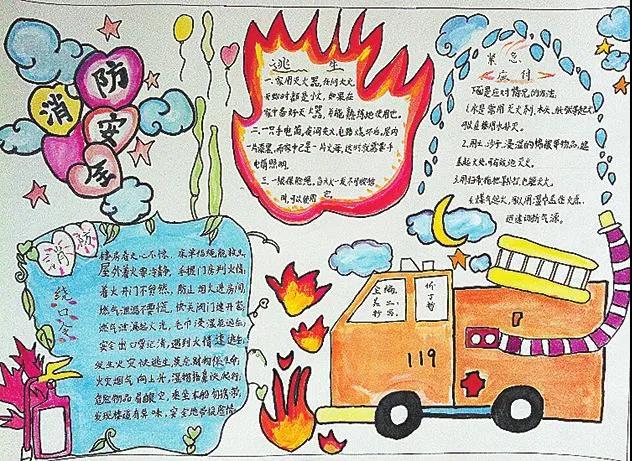 消防安全
逃生
一.常用灭火器,任何大火
开始时都是小火,如果在
家中备好灭火器,并能熟练地使用它.
二.一只手电筒,夜间失火,电路烧坏后,屋内
一片漆黑,而家中已是一片火海,这时就需要手
电筒照明.
三.一根保险绳,当大火一发不可收拾
时,可以使用它.
紧急
应付
下面是应对情况的方法.
1.水是常用灭火剂.木头,纸张等起火
可以直接用水扑灭.
2.用土.沙子.浸湿的棉被等物品,覆
盖起火处,有效地灭火.
3.用扫帚拖把等扑打,也能灭火.
煤气起火,可以用湿巾盖住火点,
迅速切断气源.
消防
绕口令
楼房着火心不惊,床单结绳能救生
屋外着火要冷静,手摸门房判火情;
着火开门不贸然,防止烟火进房间,
燃气泄漏不要慌,快关阀门速开窗.
燃气泄漏起火光,毛巾浸湿
安全出口要记清,遇到火情速逃生
发生火灾快逃生,莫恋财物保生命
火灾烟气向上升,湿帽捂鼻快爬行
危险物品酿灾,乘坐车船勿携带,
发现楼道有异味,安全地带报险情
主编
119